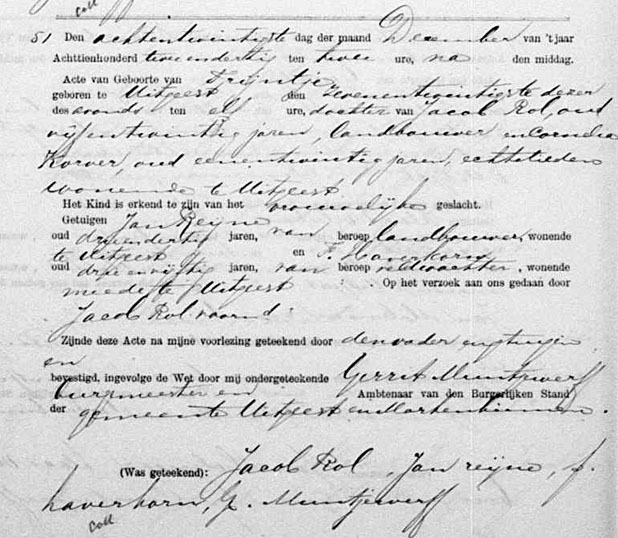 Coll
51 Den achtentwintigste dag der maand December van 't jaar
Achttienhonderd twee en dertig ten twee ure, na den middag.
Acte van Geboorte van Trijntje
geboren te Uitgeest den zevenentwintigste dezer
des avonds ten elf ure, dochter van Jacob Rol, oud
vijfentwintig jaren, landbouwer en Cornelia
Korver, oud eenentwintig jaren, echtelieden
wonende te Uitgeest
Het Kind is erkend te zijn van het vrouwelijke geslacht.
Getuigen Jan Reijne
oud drieendertig jaren, van beroep landbouwer, wonende
te Uitgeest en F. Haverkorn
oud drie en vijftig jaren, van beroep veldwachter, wonende
mede te Uitgeest Op het verzoek aan ons gedaan door
Jacob Rol voornd
Zijnde deze Acte na mijne voorlezing geteekend door den vader, en getuigen
en
bevestigd, ingevolge de Wet door mij ondergeteekende Gerrit Muntjewerff
Burgmeester en Ambtenaar van den Burgerlijken Stand
der gemeente Uitgeest en Markenbinnen.
(Was geteekend): Jacob Rol, Jan reijne, f.
haverkorn, G. Muntjewerff
Coll